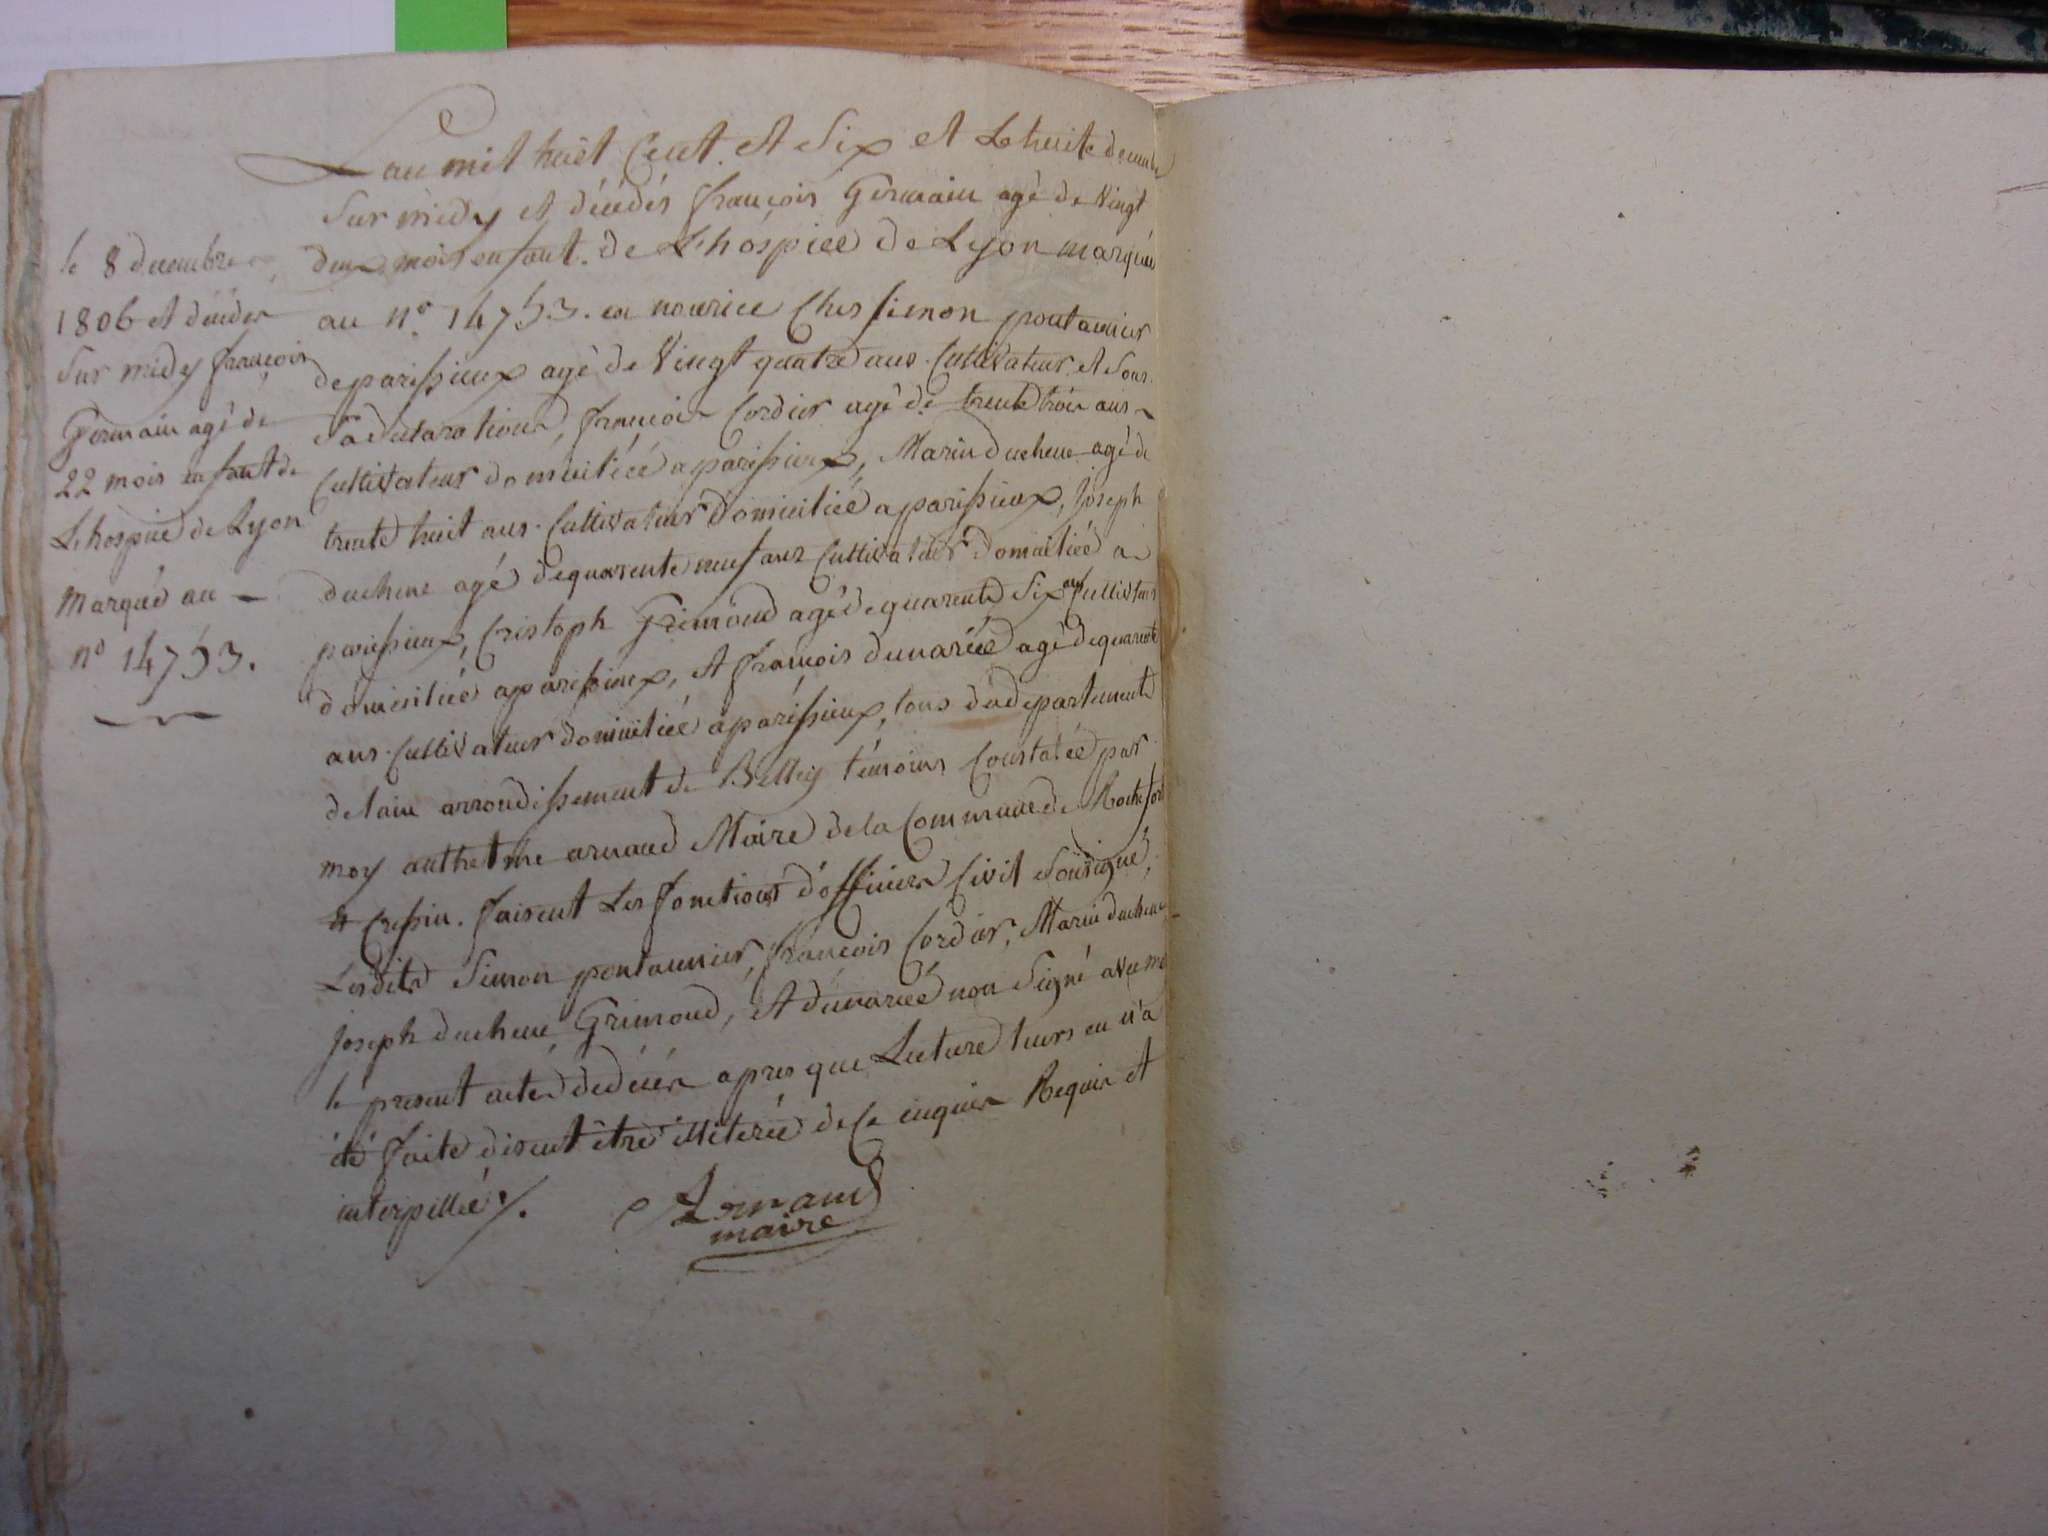 Lan mil huit Cent et Six et Le huite decembre
Sur midy et décédés françois Germain agé de Vingt
deux mois enfant de L'hospice de Lyon marquée
au n.° 14753. en nourice Ches Simon pontannier
de parissieux agé de Vingt quatre ans Cultivateur et Sous
Sa declaration, françois Cordier agé de trente trois ans
Cultivateur domicilié a parissieux, Marin duchene agé de
trente huit ans Cultivateur domicilié a parissieux, Joseph
duchene agé de quarente neuf ans Cultivateur domicilié a
parissieux, Cristoph Grimoud agé de quarente Six ans Cultivateur
domicilié a parissieux, et françois dunariée agé de quarente
ans Cultivateur domicilié a parissieux, tous du departement
de lain arrondissement de Belley témoins Constatée par
moy anthelme arnaud Maire de la Commune de Rochefort
et Cressin. faisent Les fonctions d'officier Civil Sousigné,
Lesdits Simon pontannier, françois Cordier, Marin duchene
Joseph duchene, Grimoud, et dunariée non Signé avec moy
le present acte de décés apres que Lecture leurs en n'a
été faite disent être illiterée de ce enquier Requis et
interpellée /.
Arnaud
maire
le 8 decembre
1806 et décéder
Sur midy françois
Germain agé de
22 mois enfant de
L'hospice de Lyon
Marqué au
n° 14753.